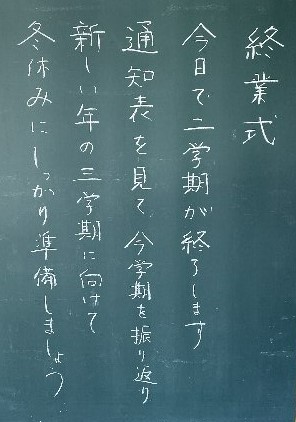 終業式
今日で二学期が終了します
通知表を見て、今学期を振り返り
新しい年の三学期に向けて
冬休みにしっかり準備しましょう